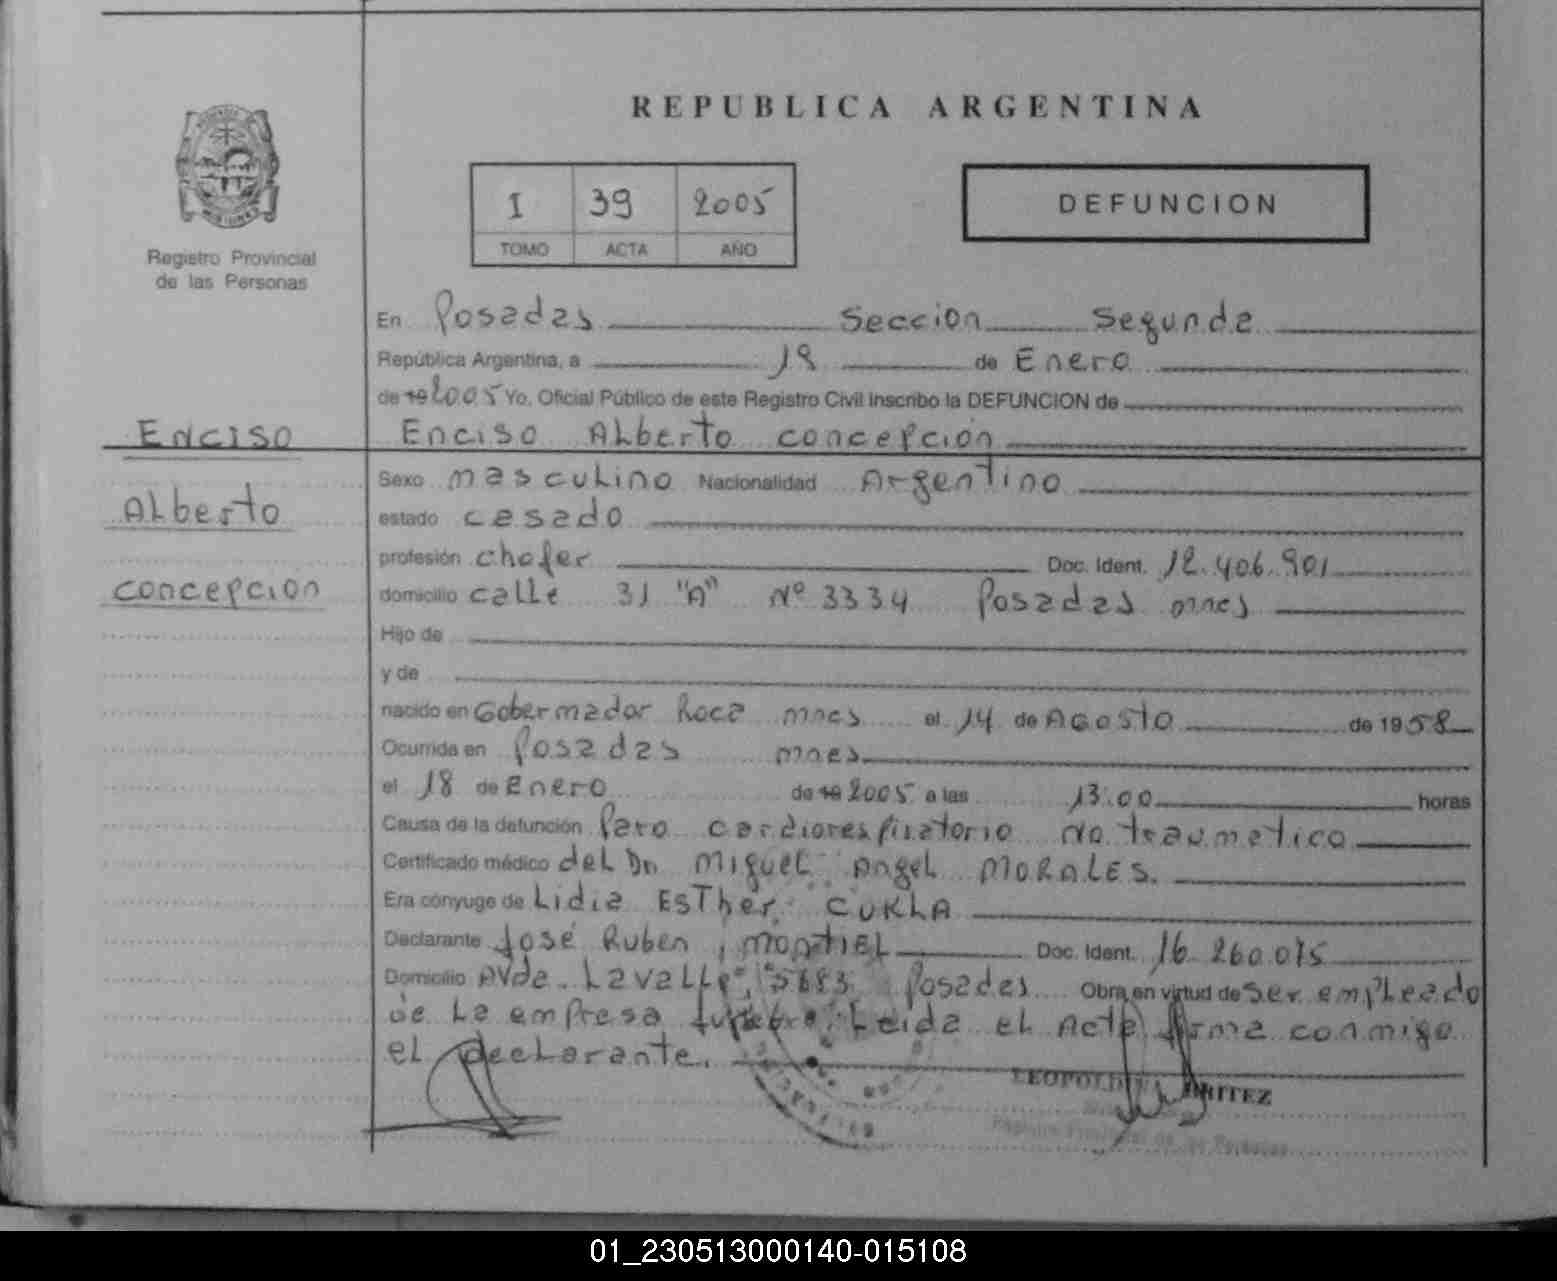 REPUBLICA ARGENTINA
I 39 2005
TOMO ACTA AÑO
DEFUNCION
Registro Provincial
de las Personas
En Posadas Seccion Segunda
República Argentina, a 19 de Enero
de 19 2005 Yo, Oficial Público de este Registro Civil inscribo la DEFUNCION de
ENCISO
Enciso Alberto concepción
Alberto
concepcion
Sexo masculino Nacionalidad Argentino
estado casado
profesión chofer Doc. Ident. 12.406.901
domicilio calle 31 "A" Nº 3334 Posadas mnes
Hijo de
y de
nacido en Gobernador Roca mnes el 14 de AGosto de 1958
Ocurrida en Posadas mnes
el 18 de Enero de 19 2005 a las 13:00 horas
Causa de la defunción Paro cardiorespiratorio No traumatico
Certificado médico del Dr. Miguel Angel MORALES.
Era cónyuge de Lidia EsTher CUKLA
Declarante José Ruben, MONTIEL Doc. Ident. 16.260.075
Domicilio AVda. Lavalle, 5683 Posadas Obra en virtud de Ser empleado
de La empresa funebre. Leida el Acta firma conmigo
el declarante.
BRITEZ
Registro Provincial de las Personas
01_230513000140-015108